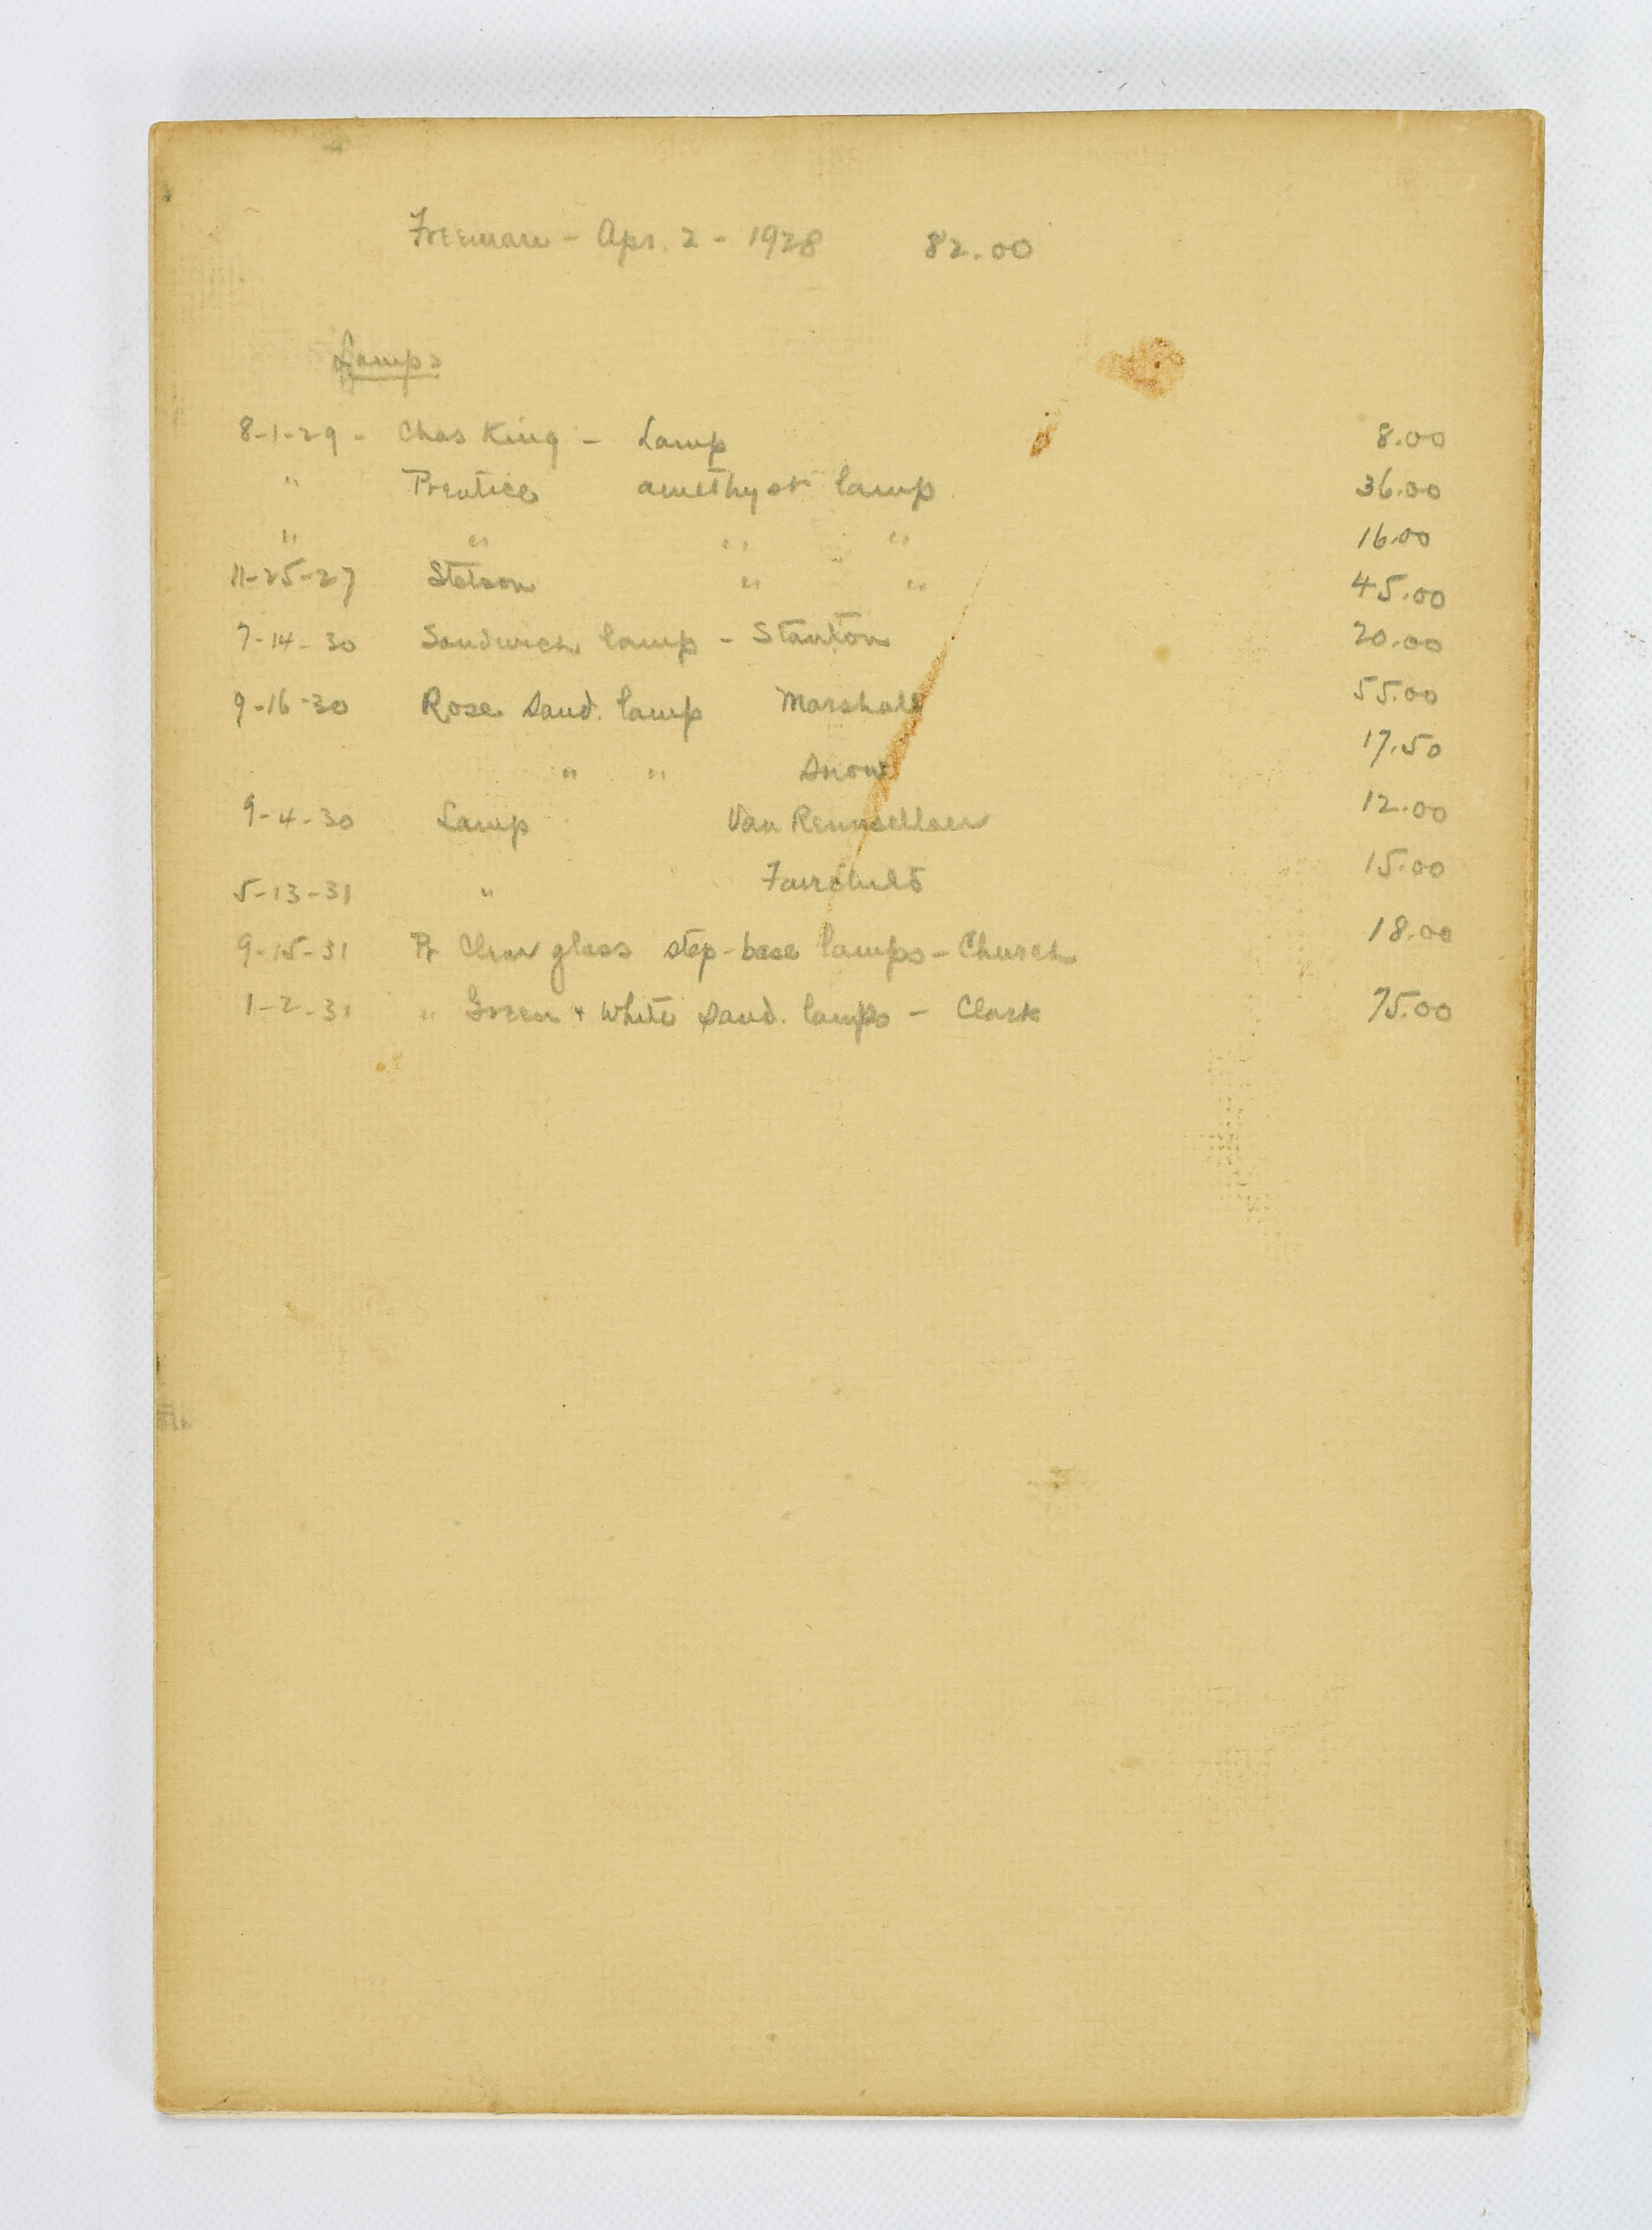 Freeman - Apr. 2 - 1928 82.00
Lamps
8-1-29 - Chas King - Lamp 8.00
" Prentice amethyst lamp 36.00
" " " " 16.00
11-25-27 Stetson " " 45.00
7-14-30 Sandwich lamp - Stanton 20.00
9-16-30 Rose Sand. lamp Marshall 55.00
" " Snow 17.50
9-4-30 Lamp Van Rennsellaer 12.00
5-13-31 " Fairchild 15.00
9-15-31 Pr Clear glass step-base lamps - Church 18.00
1-2-31 " Green + White Sand. lamps - Clark 75.00